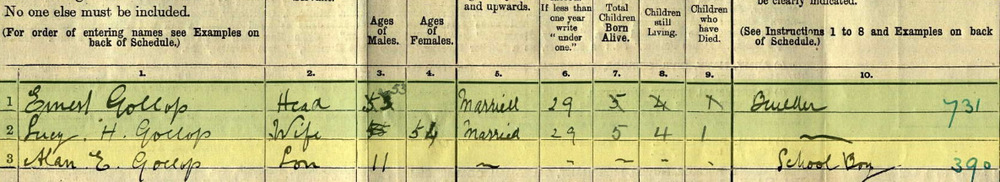 No one else must be included.
(For order of entering names see Examples on back of Schedule.)
Ages of Males.
Ages of Females.
and upwards.
If less than one year write "under one."
Total Children Born Alive.
Children still Living.
Children who have Died.
be clearly indicated.
(See Instructions 1 to 8 and Examples on back of Schedule.)
1. 2. 3. 4. 5. 6. 7. 8. 9. 10.
1 Ernest Gollop Head 53 Married 29 5 4 1 Builder 731
2 Lucy H. Gollop Wife 54 Married 29 5 4 1 —
3 Alan E. Gollop Son 11 – – – – – School Boy 390